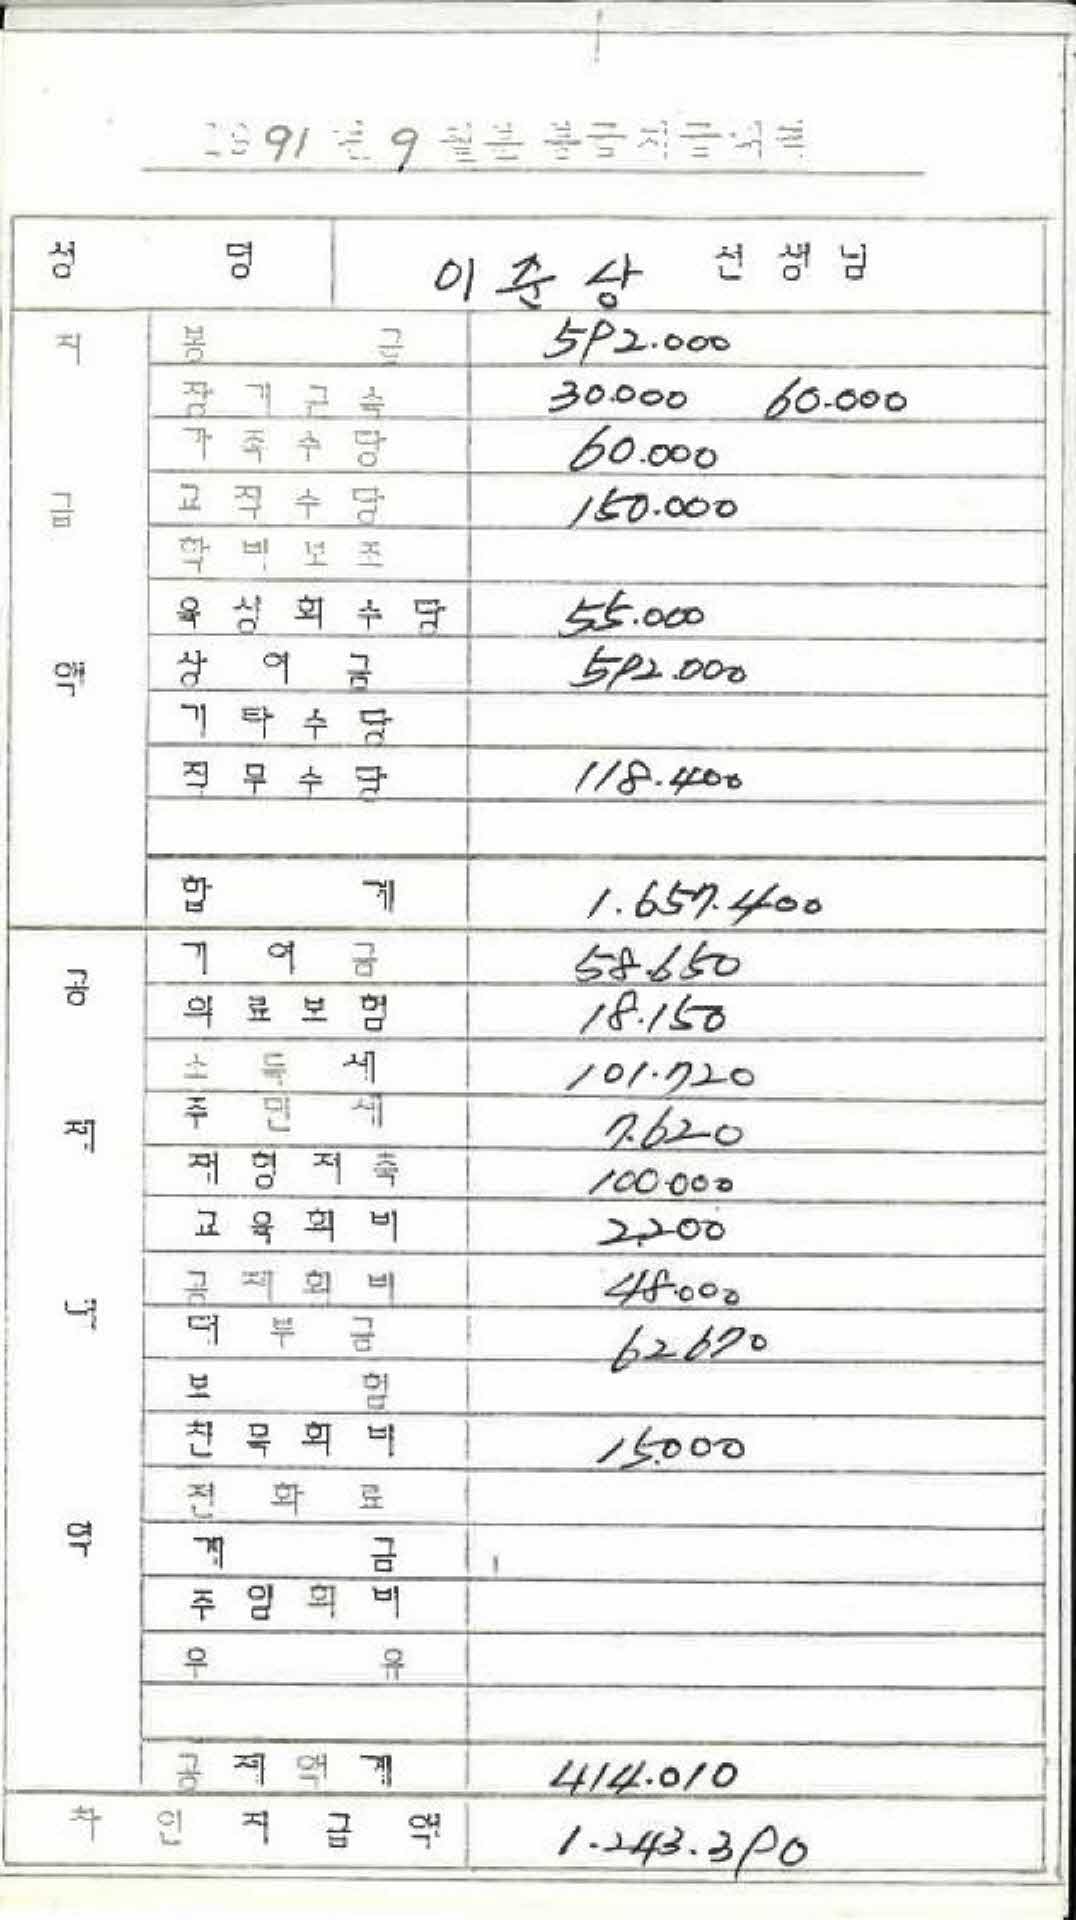 1991 년 9 월분 봉급지급명세표
성 명 이준상 선생님
지급액
봉 급 592.000
장기근속 30.000 60.000
가족수당 60.000
교직수당 150.000
학비보조
육성회수당 55.000
상여금 592.000
기타수당
직무수당 118.400
합 계 1.657.400
공제내역
기여금 58.650
의료보험 18.150
소득세 101.720
주민세 7.620
재형저축 100.000
교육회비 2.200
공제회비 48.000
대부금 62670
보 험
친목회비 15.000
전화료
계 금
주임회비
우 유
공제액계 414.010
차인지급액 1.243.390